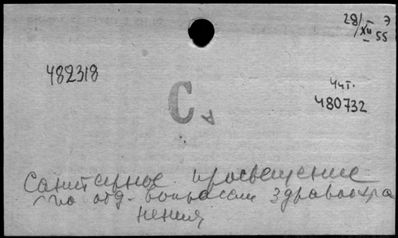 28/XII 55
Э
482318
Чит.
480732
С
Санитарное просвещение
по отд. вопросам здравоохра
нения